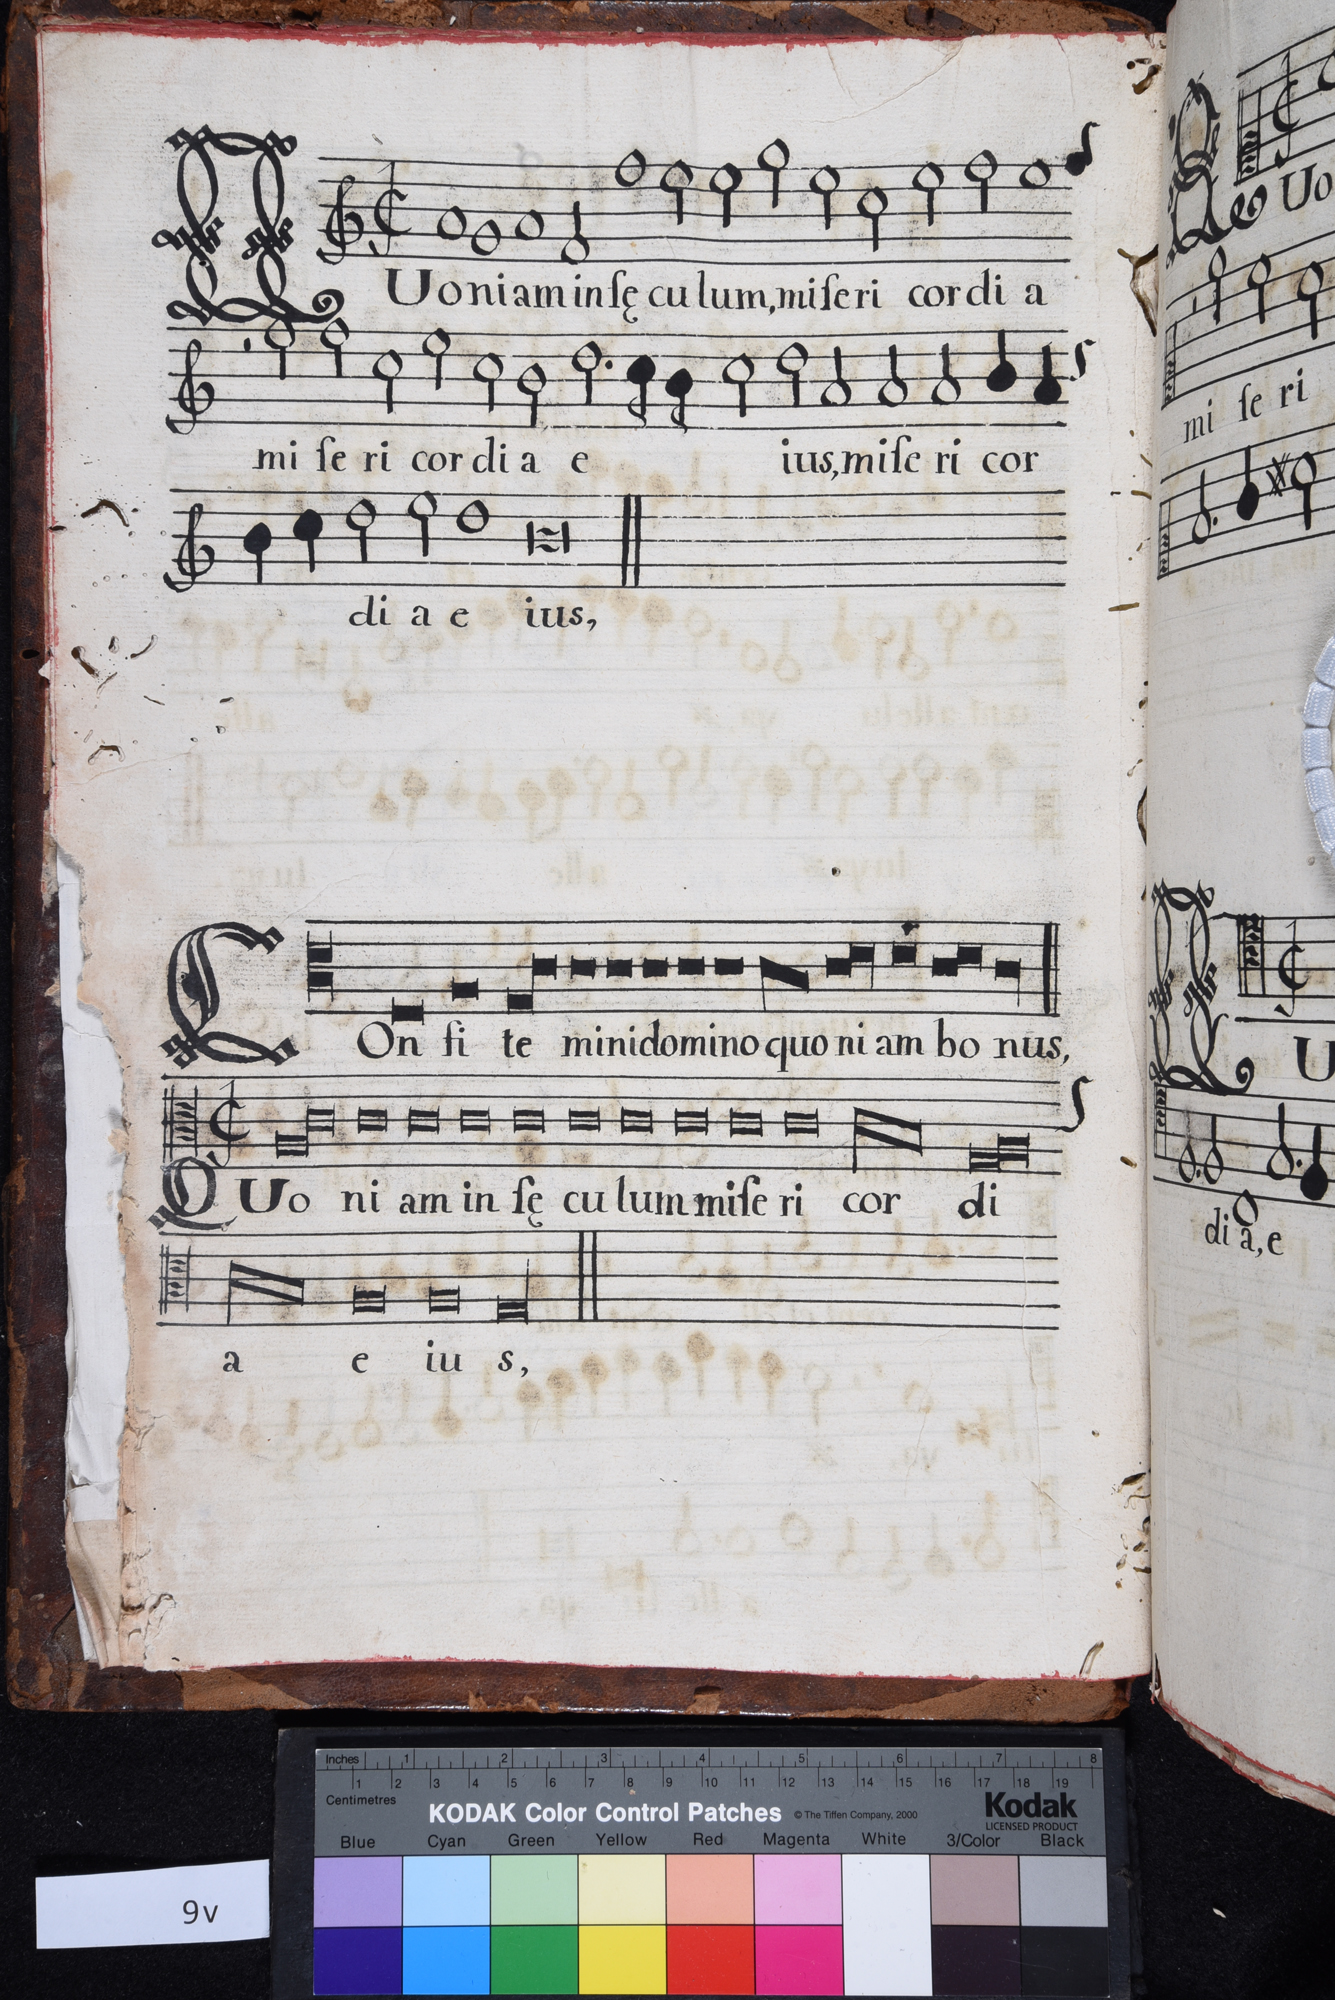 QUoniam in sę culum, miseri cordi a
mi se ri cordi a e ius, mise ri cor
di a e ius,
COn fi te minidomino quo ni am bo nus,
QUo ni am in sę cu lum mise ri cor di
a e iu s,
Uo
mi se ri
U
di a, e
Inches 1 2 3 4 5 6 7 8
1 2 3 4 5 6 7 8 9 10 11 12 13 14 15 16 17 18 19
Centimetres
KODAK Color Control Patches © The Tiffen Company, 2000 Kodak
LICENSED PRODUCT
Blue Cyan Green Yellow Red Magenta White 3/Color Black
9v